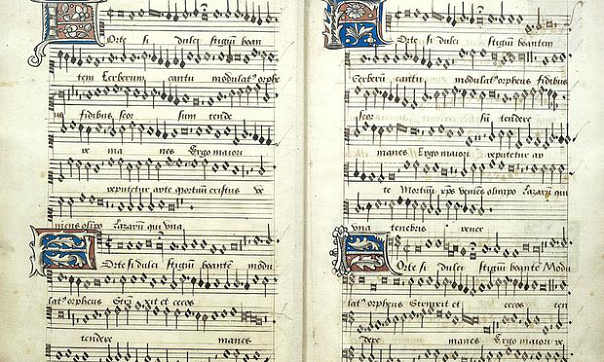 Orte si dulci stigiũ boan
tem Cerberum cantu modulatˀ orphe
us fidibus scor sum tende
re manes Ergo maiori
reputetur ayte mortuũ
mens olipo Lazarũ qui vna
Orte si dulci stigiũ boante modu
latˀ orpheus xit et cecos
tendere manes
Orte si dulci stigiũ boantem
Cerberũ cantu modulatˀ orpheus fidibus
scor sũ tendere
manes Ergo maiori reputetur ay
te Mortuũ xp̃s veniẽs olimpo Lazarũ qui
vna tenebris vener
Orte si dulci stigiũ boante Modu
latˀ orpheus Strinxit et cecos ten
dere manes Ergo maiori re